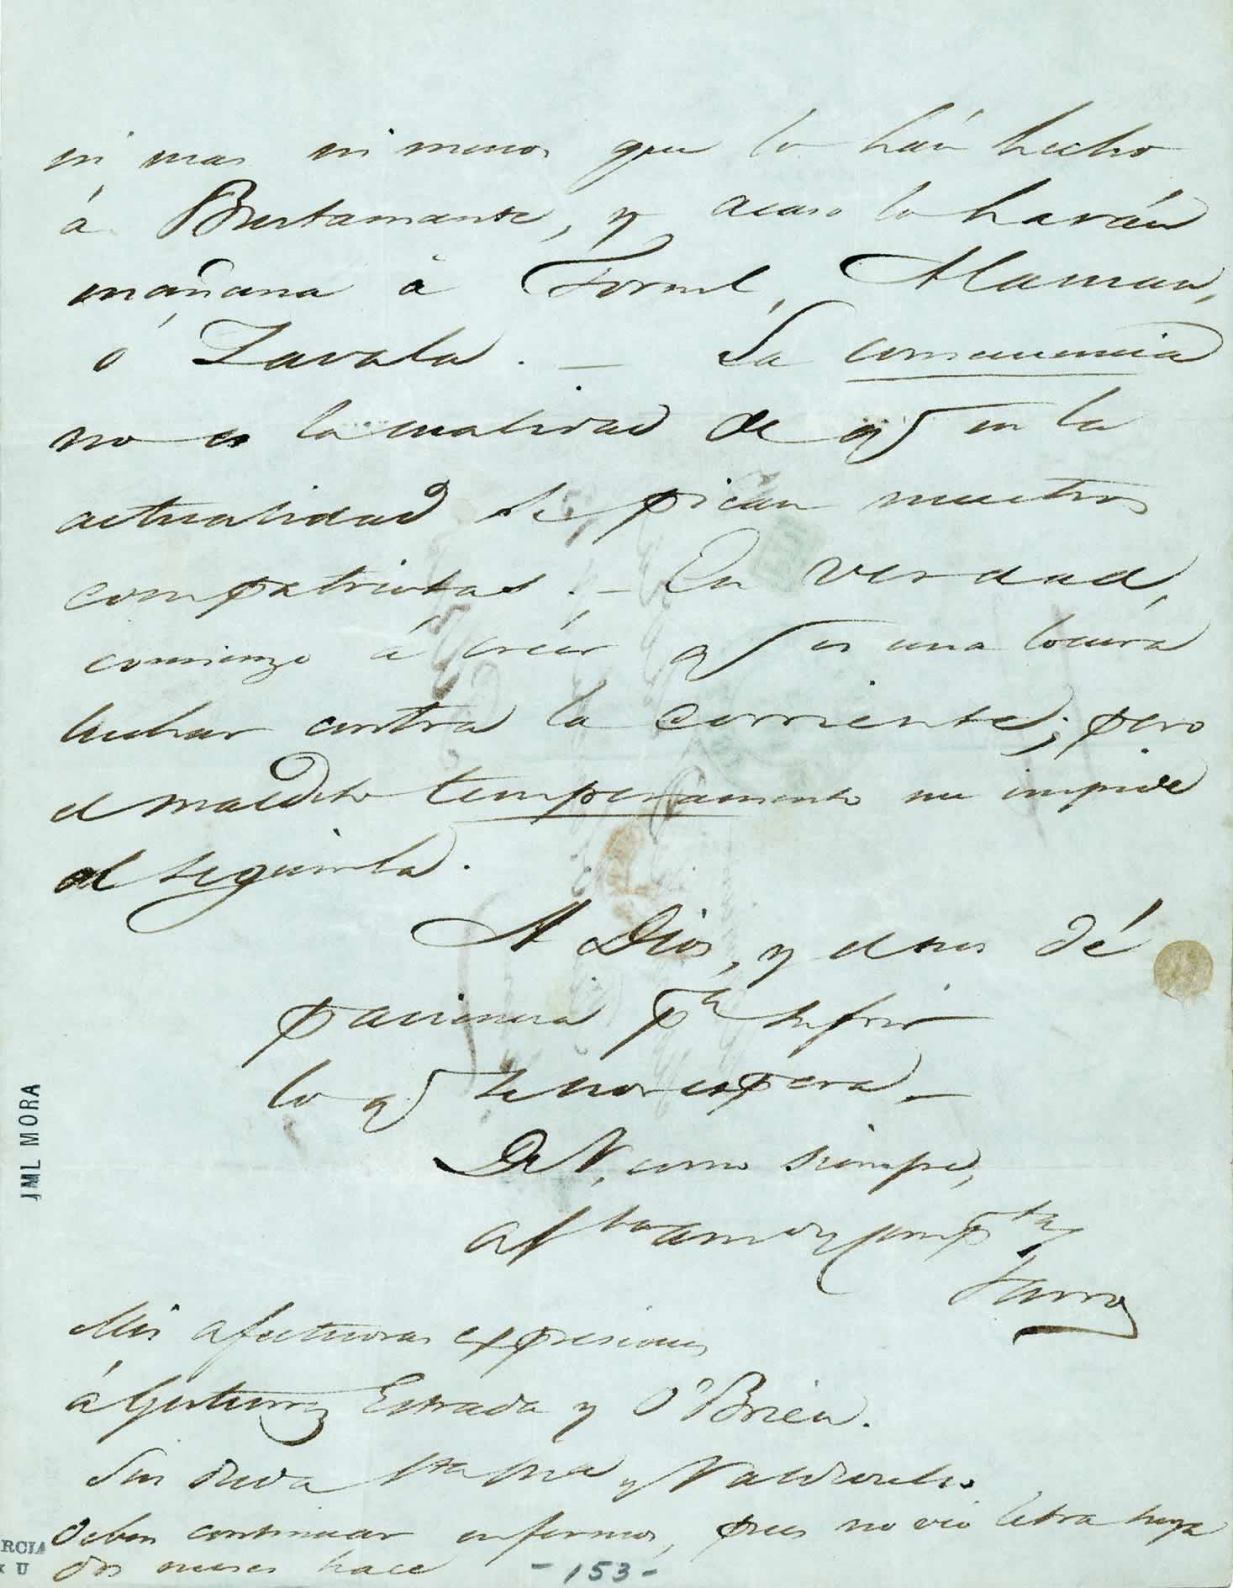 ni mas ni menos que lo hán hecho
á Bustamante, y acaso lo harán
mañana à Tornel, Alaman,
ó Zavala. — La consecuencia
no es la cualidad de q en la
actualidad se pican nuestros
compatriotas. — En verdad,
comienzo á créer q es una locura
luchar contra la corriente; pero
el maldito temperamento me impide
el seguirla.
A Dios, y el nos dé
paciencia pª sufrir
lo q se nos espera, —
De V. como siempre,
af^mo am^o y comp^ta
Mis afectuosas expresiones
á Gutierrez Estrada y O'Brien.
Sin duda y Valdivielso
deben continuar enfermos, pues no veo letra suya
dos meses hace
-153-
JML MORA
RCIA
U